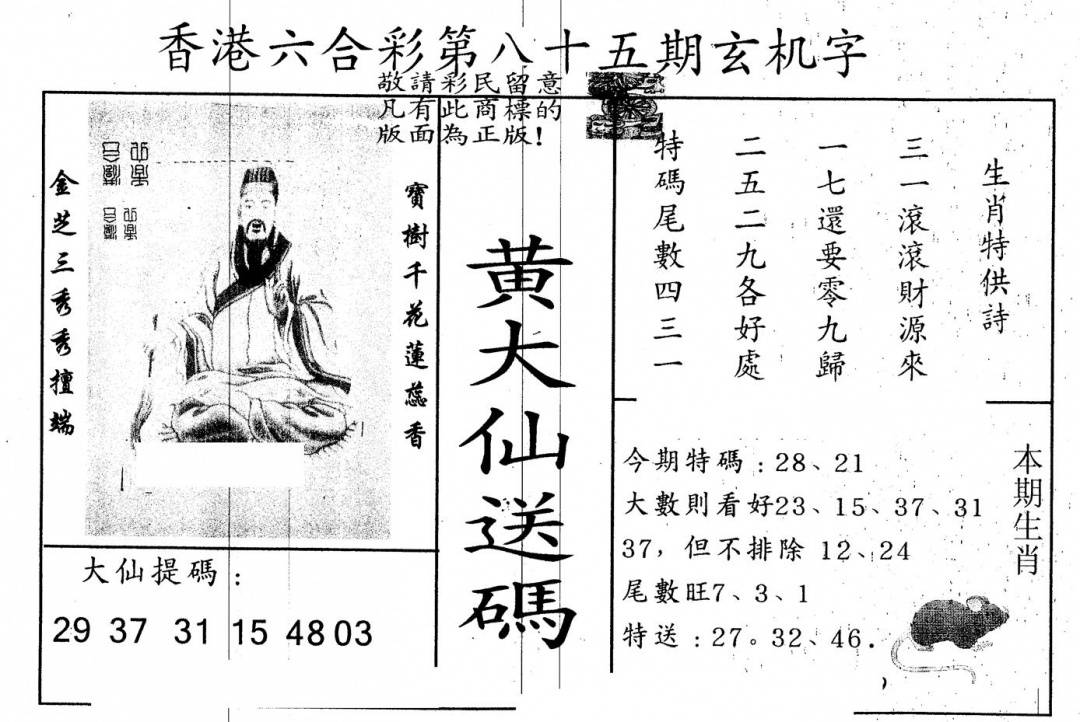 香港六合彩第八十五期玄机字
敬請彩民留意
凡有此商標的
版面為正版!
寶樹千花蓮蕊香
金芝三秀秀擅端
大仙提碼：
29 37 31 15 48 03
黄大仙送碼
生肖特供詩
三一滾滾財源來
一七還要零九歸
二五二九各好處
特碼尾數四三一
今期特碼：28、21
大數則看好23、15、37、31
37，但不排除 12、24
尾數旺7、3、1
特送：27。32、46.
本期生肖